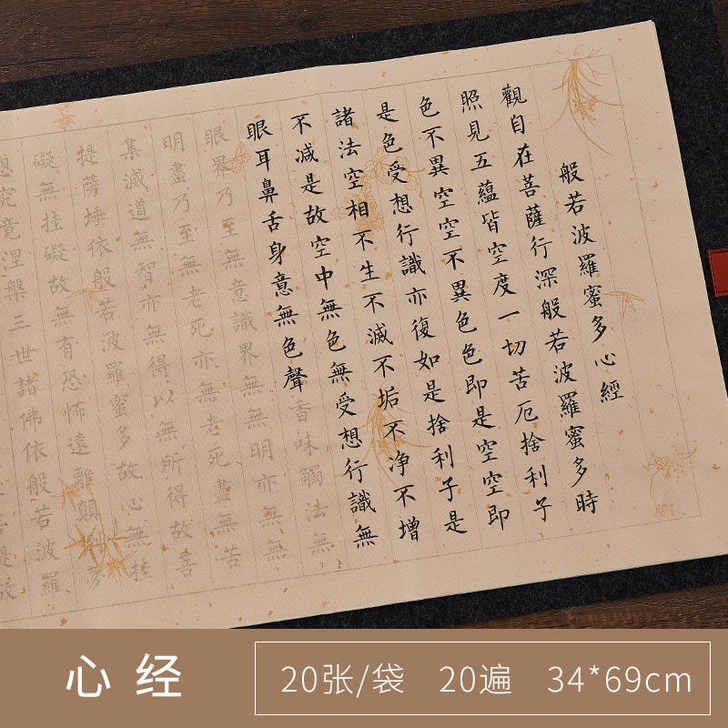 般若波羅蜜多心經
觀自在菩薩行深般若波羅蜜多時
照見五蘊皆空度一切苦厄捨利子
色不異空空不異色色即是空空即
是色受想行識亦復如是捨利子是
諸法空相不生不滅不垢不净不增
不减是故空中無色無受想行識無
眼耳鼻舌身意無色聲香味觸法無
眼界乃至無意識界無無明亦無無
明盡乃至無老死亦無老死盡無苦
集滅道無智亦無得以無所得故菩
提薩埵依般若波羅蜜多故心無挂
礙無挂礙故無有恐怖遠離顛倒夢
想究竟涅槃三世諸佛依般若波羅
是故
心经
20张/袋 20遍 34*69cm